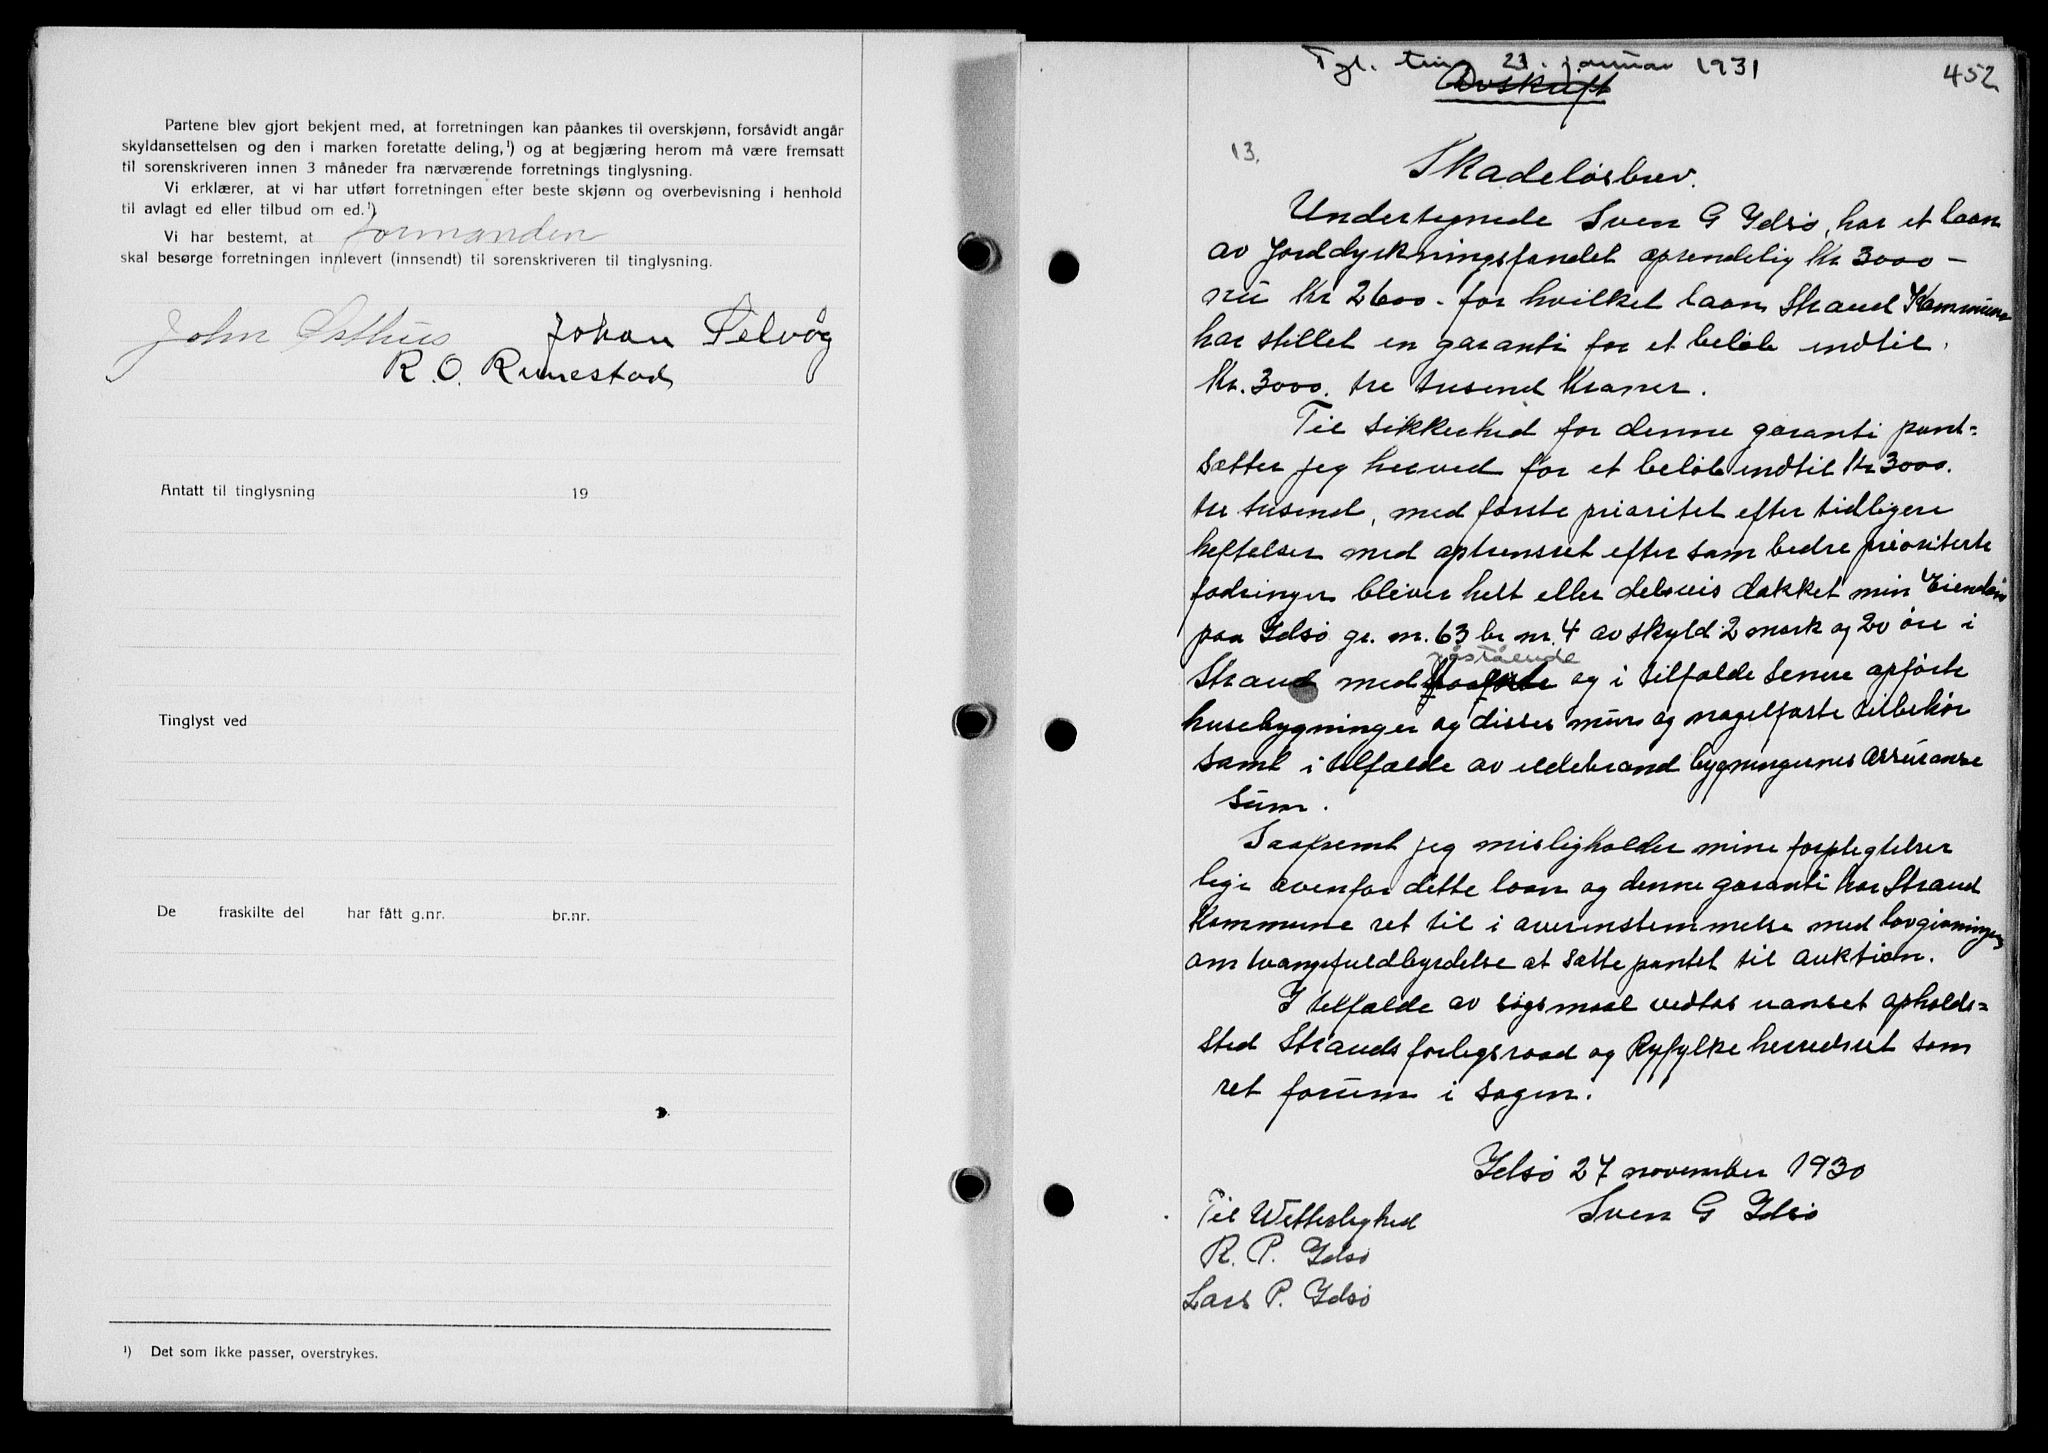 Partene blev gjort bekjent med, at forretningen kan påankes til overskjønn, forsåvidt angår
skyldansettelsen og den i marken foretatte deling,¹) og at begjæring herom må være fremsatt
til sorenskriveren innen 3 måneder fra nærværende forretnings tinglysning.
Vi erklærer, at vi har utført forretningen efter beste skjønn og overbevisning i henhold
til avlagt ed eller tilbud om ed.¹)
Vi har bestemt, at formanden
skal besørge forretningen innlevert (innsendt) til sorenskriveren til tinglysning.
John Østhus Johan Telvåg
R. O. Runestad
Antatt til tinglysning 19
Tinglyst ved
De fraskilte del har fått g.nr. br.nr.
¹) Det som ikke passer, overstrykes.
Tgl. ting 21. januar 1931
452
Avskrift
13.
Skadeløsbrev.
Undertegnede Sven G Idsø, har et laan
av Jorddyrkningsfondet oprendelig Kr 3000 –
nu Kr 2600 - for hvilket laan Strand Kommune
har stillet en garanti for et beløb indtil
Kr. 3000. tre tusend Kroner.
Til sikkerhed for denne garanti pant=
sætter jeg herved for et beløb indtil Kr 3000.
tre tusend, med første prioritet efter tidligere
heftelser med optrinsret efter som bedre prioriterte
fodringer bliver helt eller delsvis dækket min Eiendom
paa Idsø gr. nr. 63 br nr. 4 av skyld 2 mark og 20 øre i
påstående
Strand med og i tilfælde senere opførte
husebygninger og disses mur og nagelfaste tilbehør
samt i tilfælde av ildebrand bygningernes Assuranse
sum.
Saafremt jeg misligholder mine forplegtelser
lige ovenfor dette laan og denne garanti har Strand
Kommune ret til i overenstemmelse med lovgivningen
om tvangsfuldbyrdelse at sætte pantet til auktion.
I tilfælde av søgsmaal vedtas uanset opholds=
sted Strands forlegsraad og Ryfylke herredsret som
ret forum i sagen.
Idsø 27 november 1930
Sven G Idsø
Til Vitterlighed
R. P. Idsø
Lars P. Idsø